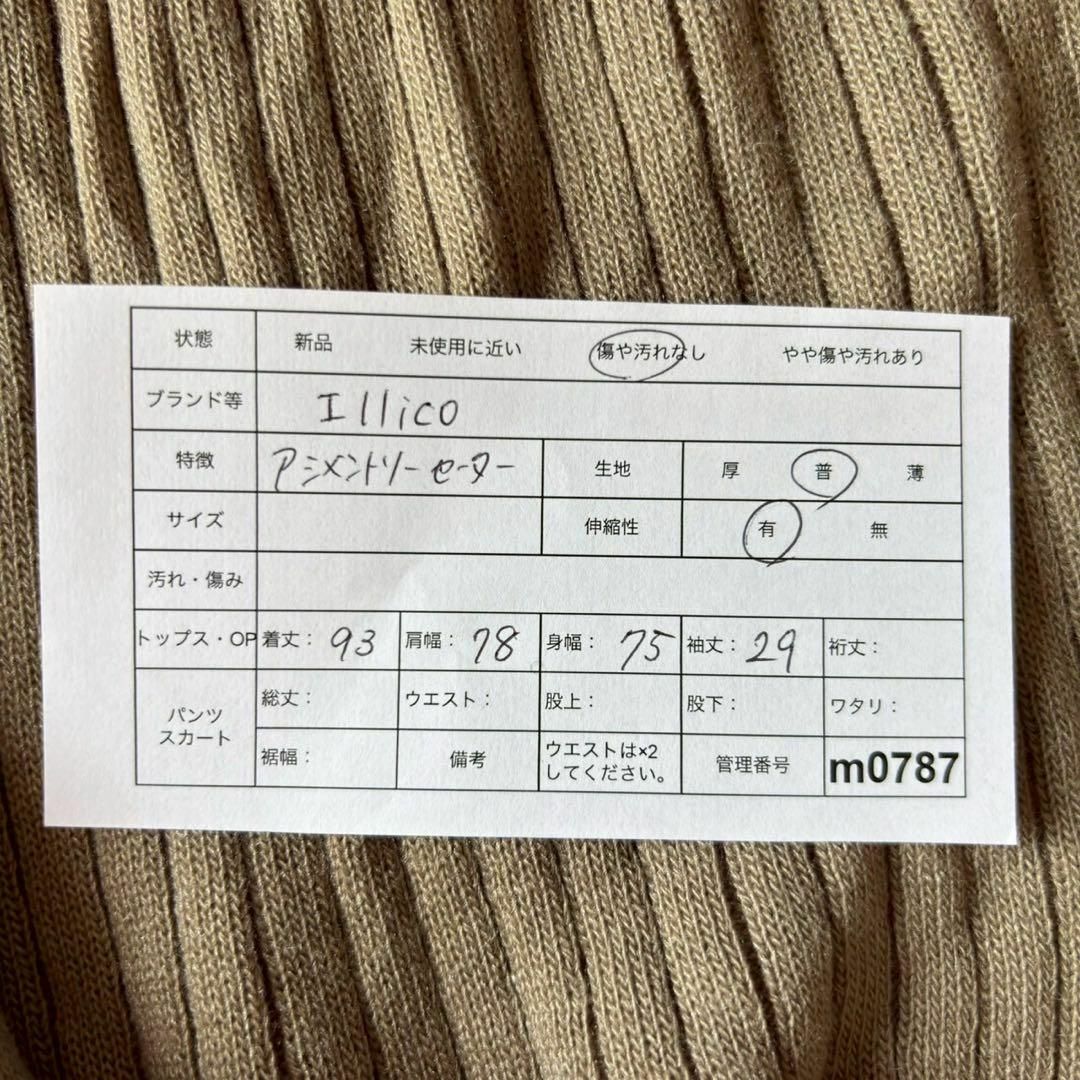 状態 新品 未使用に近い 傷や汚れなし やや傷や汚れあり
ブランド等 Illico
特徴 アシメントリーセーター 生地 厚 普 薄
サイズ 伸縮性 有 無
汚れ・傷み
トップス・OP 着丈： 93 肩幅： 78 身幅： 75 袖丈： 29 裄丈：
パンツ
スカート
総丈： ウエスト： 股上： 股下： ワタリ：
裾幅： 備考 ウエストは×2
してください。 管理番号 m0787